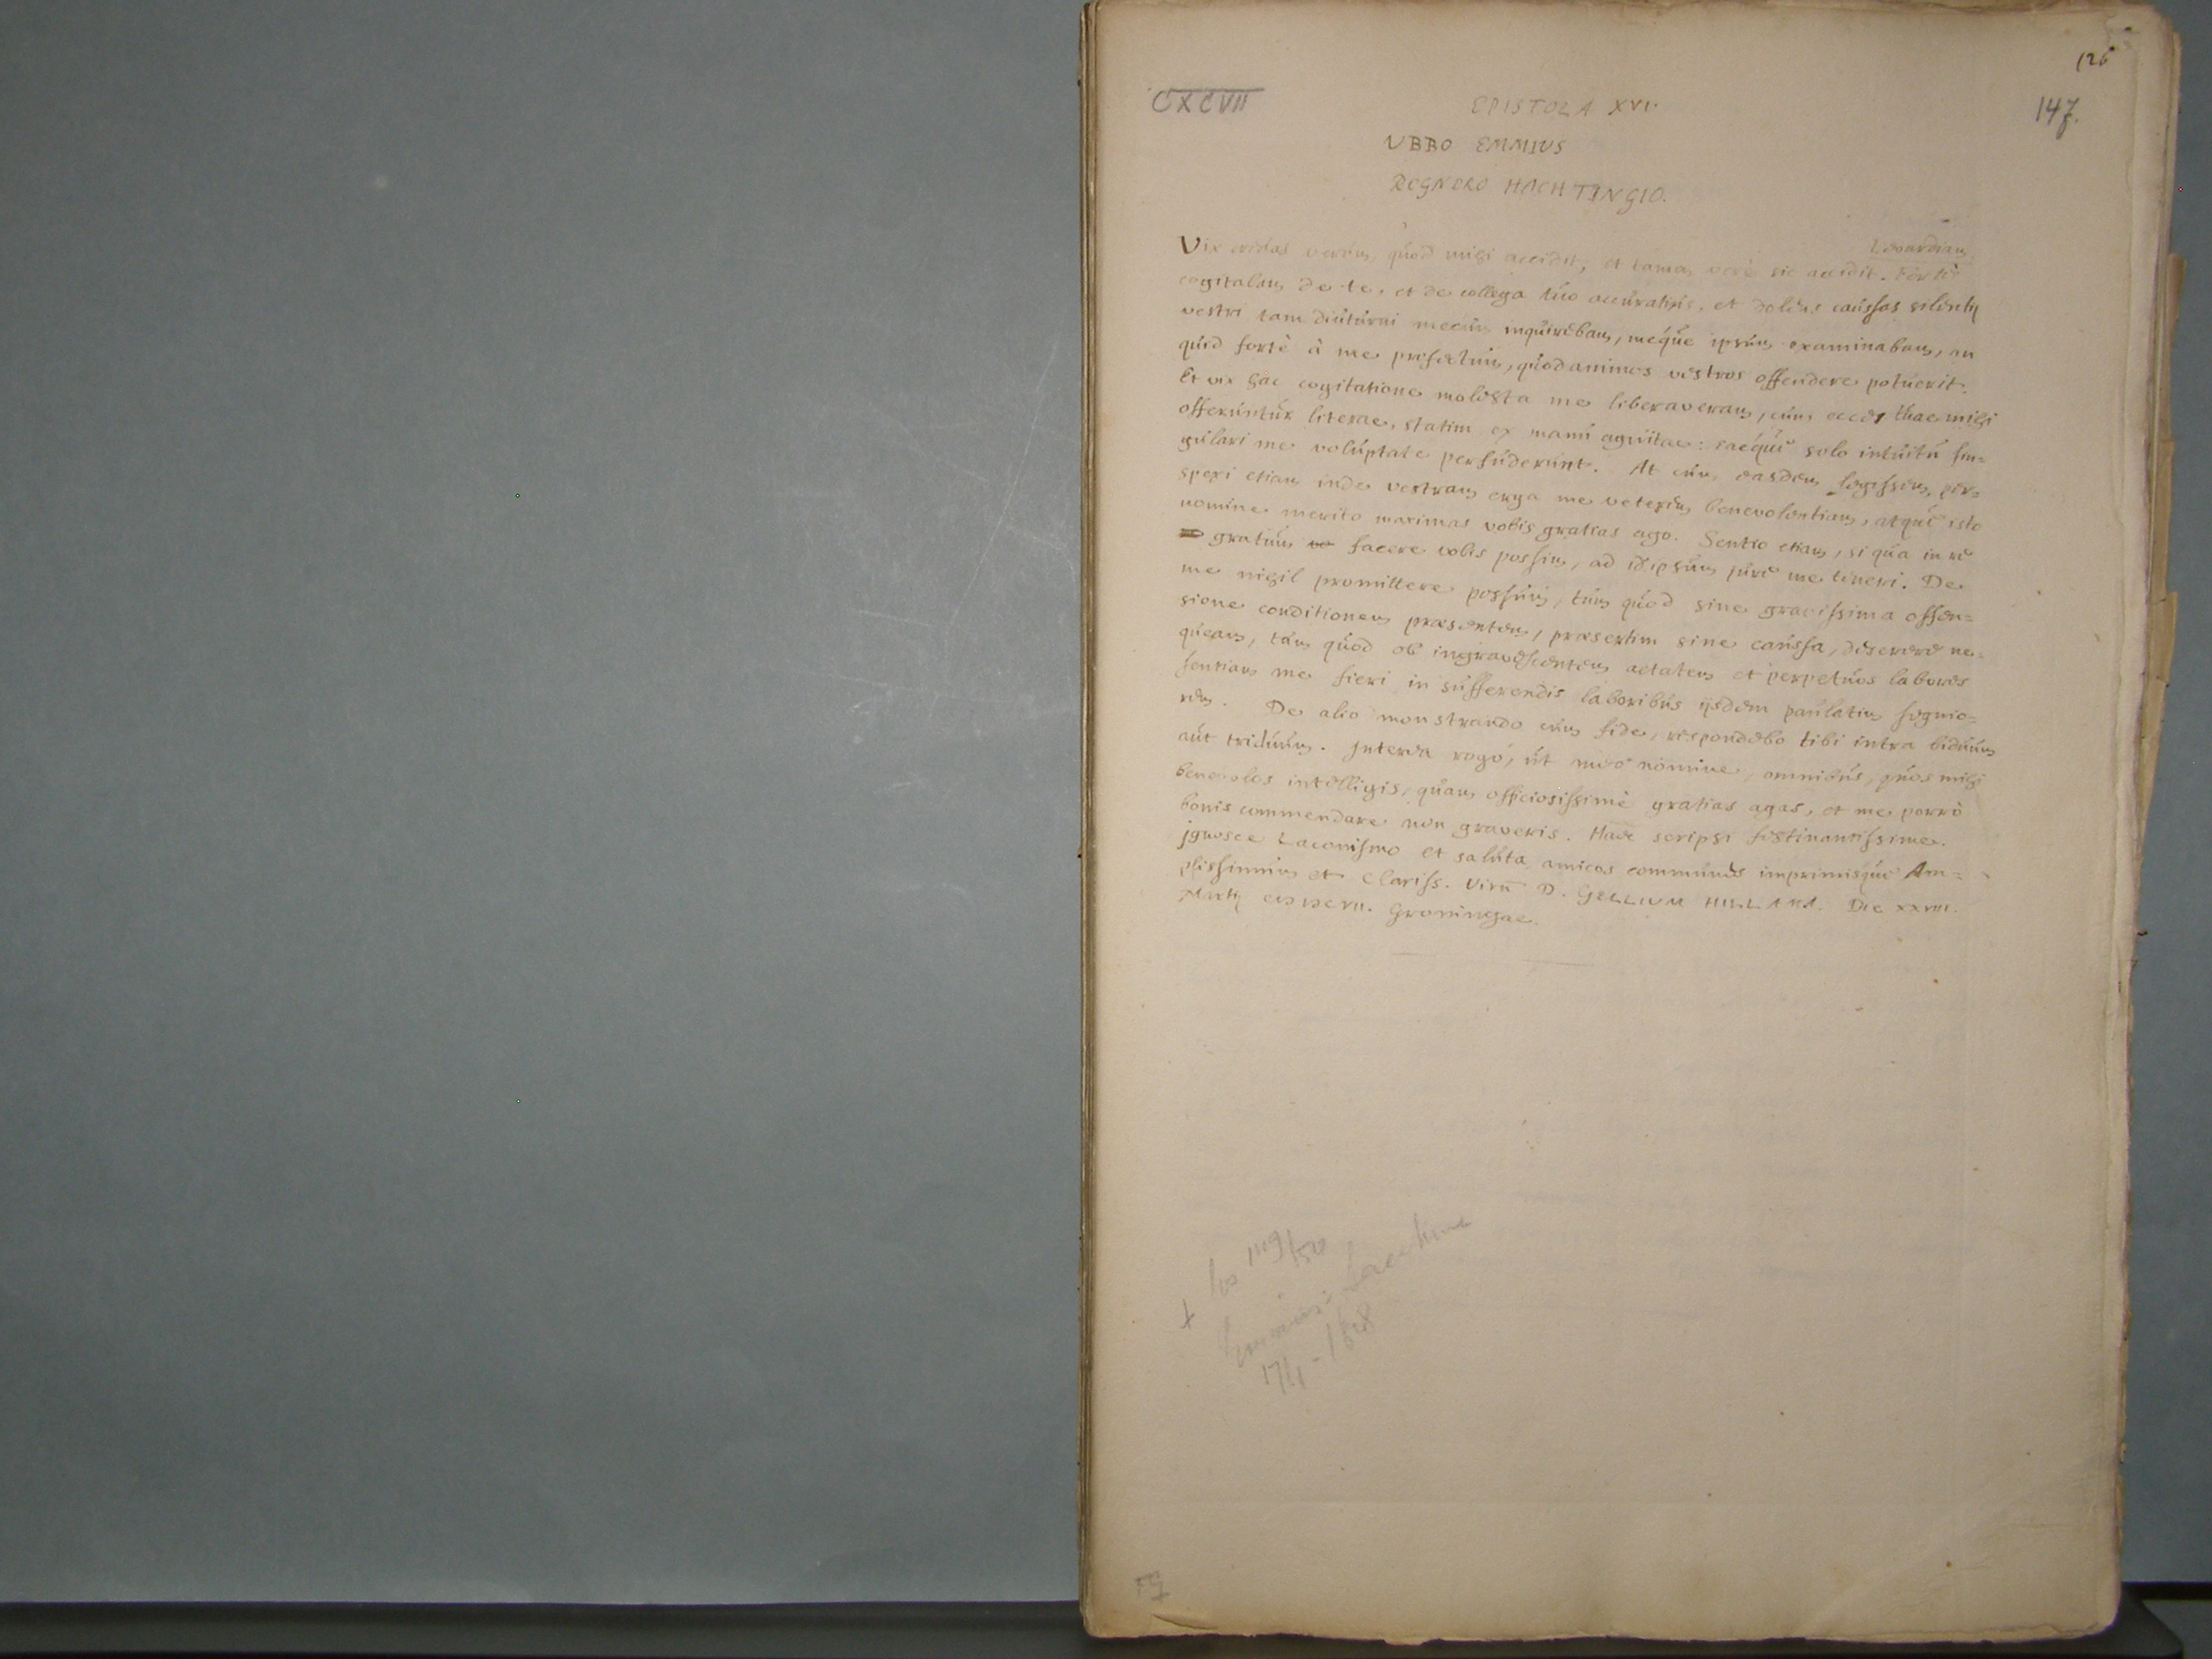 126
CXCVII
EPISTOLA XVI.
147.
UBBO EMMIUS
REGNERO HACHTINGIO.
Leouardiam
Vix credas verum, quod mihi accidit, et tamen verè sic accidit. Fortè
cogitabam de te, et de collega tuo accuratius, et dolens caussas silentij
vestri tam diuturni mecum inquirebam, meque ipsum examinabam, an
quid fortè à me profectum, quod animos vestros offendere potuerit.
Et vix hac cogitatione molesta me liberaveram, cum ecce tuae mihi
offeruntur literae, statim ex manu agnitae: eaeque solo intuitu sin=
gulari me voluptate perfuderunt. At cum easdem legissem, per=
spexi etiam inde vestram erga me veterem benevolentiam, atque isto
nomine merito maximas vobis gratias ago. Sentio etiam, si qua in re
gratum facere vobis possim, ad id ipsum jure me teneri. De
me nihil promittere possum, tum quod sine gravissima offen=
sione conditionem praesentem, praesertim sine caussa, deserere ne=
queam, tum quod ob ingravescentem aetatem et perpetuos labores
sentiam me fieri in sufferendis laboribus ijsdem paulatim segnio=
rem. De alio monstrando cum fide, respondebo tibi intra biduum
aut triduum. Interea rogo, ut meo nomine, omnibus, quos mihi
benevolos intelligis, quam officiosissimè gratias agas, et me porrò
bonis commendare non graveris. Haec scripsi festinantissime.
Ignosce Laconismo et saluta amicos communes imprimisque Am=
plissimum et Clariss. Virum D. GELLIUM HILLAMA. Die XXVIII.
Martij Groningae.
17/1 - 1608